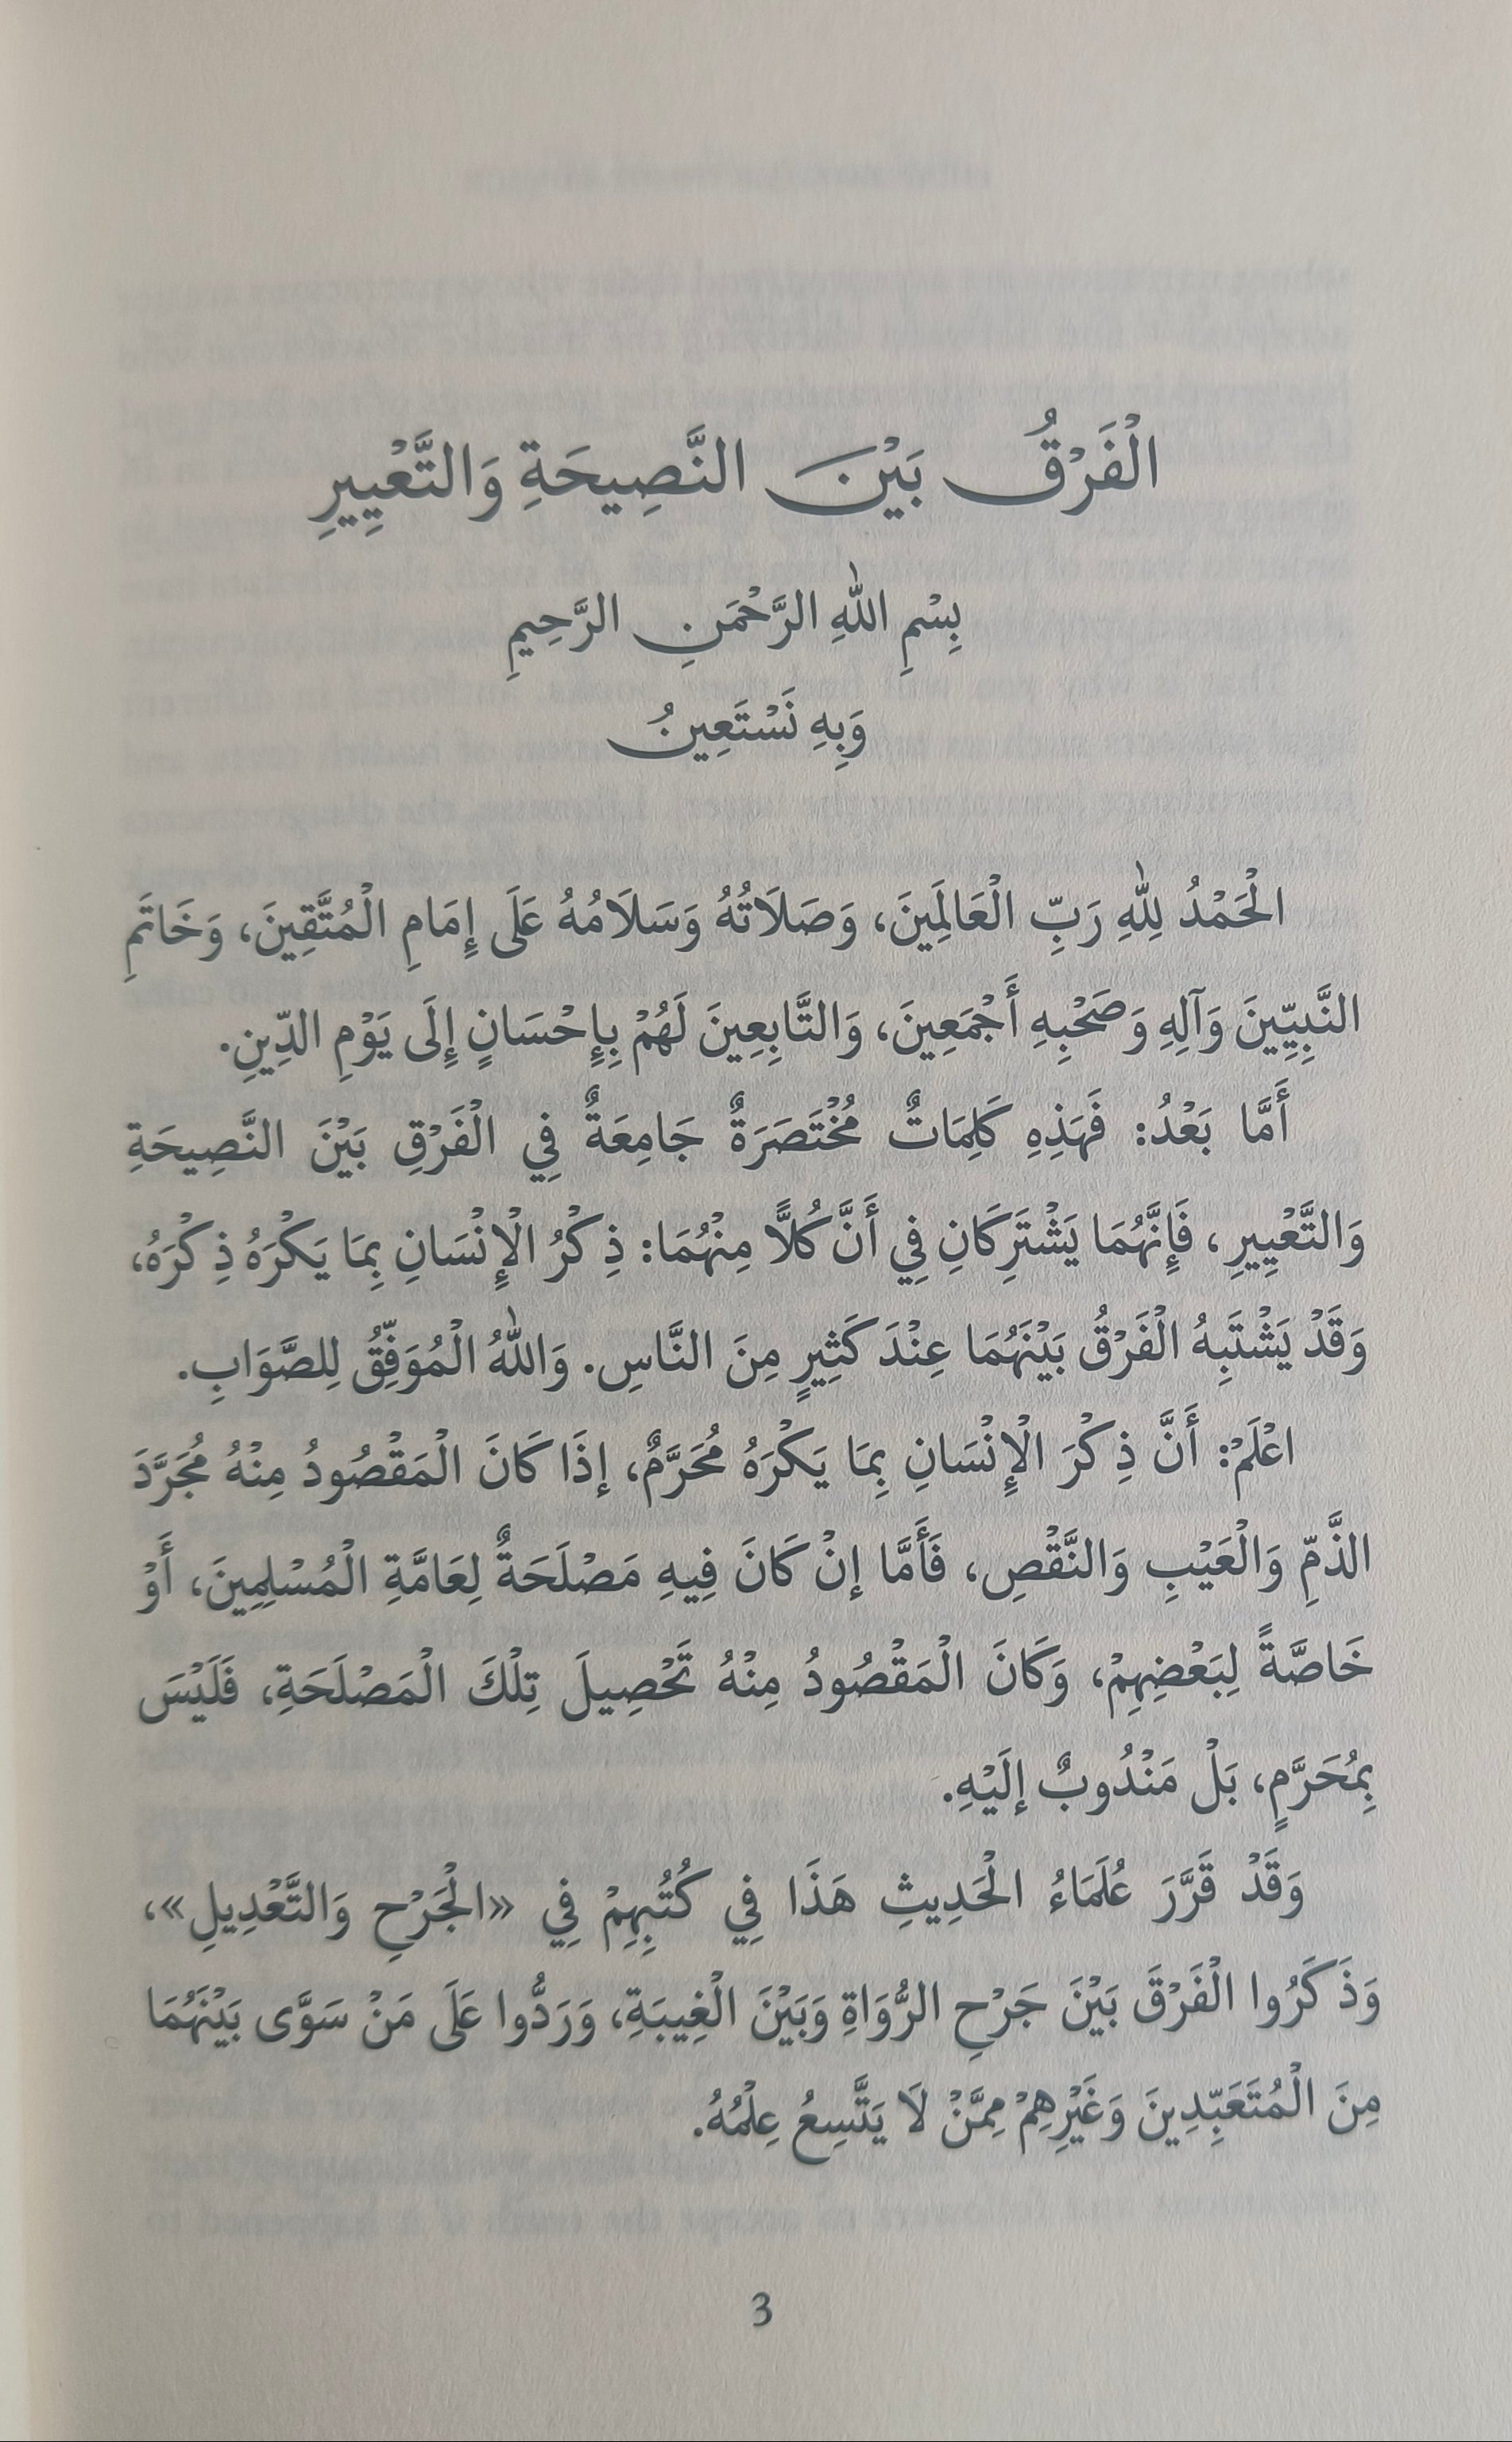 الْفَرْقُ بَيْنَ النَّصِيحَةِ وَالتَّعْيِيرِ
بِسْمِ اللهِ الرَّحْمَنِ الرَّحِيمِ
وَبِهِ نَسْتَعِينُ
الْحَمْدُ لِلَّهِ رَبِّ الْعَالَمِينَ، وَصَلَاتُهُ وَسَلَامُهُ عَلَى إِمَامِ الْمُتَّقِينَ، وَخَاتَمِ
النَّبِيِّينَ وَآلِهِ وَصَحْبِهِ أَجْمَعِينَ، وَالتَّابِعِينَ لَهُمْ بِإِحْسَانٍ إِلَى يَوْمِ الدِّينِ.
أَمَّا بَعْدُ: فَهَذِهِ كَلِمَاتٌ مُخْتَصَرَةٌ جَامِعَةٌ فِي الْفَرْقِ بَيْنَ النَّصِيحَةِ
وَالتَّعْيِيرِ، فَإِنَّهُمَا يَشْتَرِكَانِ فِي أَنَّ كُلًّا مِنْهُمَا: ذِكْرُ الْإِنْسَانِ بِمَا يَكْرَهُ ذِكْرَهُ،
وَقَدْ يَشْتَبِهُ الْفَرْقُ بَيْنَهُمَا عِنْدَ كَثِيرٍ مِنَ النَّاسِ. وَاللهُ الْمُوَفِّقُ لِلصَّوَابِ.
اعْلَمْ: أَنَّ ذِكْرَ الْإِنْسَانِ بِمَا يَكْرَهُ مُحَرَّمٌ، إِذَا كَانَ الْمَقْصُودُ مِنْهُ مُجَرَّدَ
الذَّمِّ وَالْعَيْبِ وَالنَّقْصِ، فَأَمَّا إِنْ كَانَ فِيهِ مَصْلَحَةٌ لِعَامَّةِ الْمُسْلِمِينَ، أَوْ
خَاصَّةً لِبَعْضِهِمْ، وَكَانَ الْمَقْصُودُ مِنْهُ تَحْصِيلَ تِلْكَ الْمَصْلَحَةِ، فَلَيْسَ
بِمُحَرَّمٍ، بَلْ مَنْدُوبٌ إِلَيْهِ.
وَقَدْ قَرَّرَ عُلَمَاءُ الْحَدِيثِ هَذَا فِي كُتُبِهِمْ فِي «الْجَرْحِ وَالتَّعْدِيلِ»،
وَذَكَرُوا الْفَرْقَ بَيْنَ جَرْحِ الرُّوَاةِ وَبَيْنَ الْغِيبَةِ، وَرَدُّوا عَلَى مَنْ سَوَّى بَيْنَهُمَا
مِنَ الْمُتَعَبِّدِينَ وَغَيْرِهِمْ مِمَّنْ لَا يَتَّسِعُ عِلْمُهُ.
3